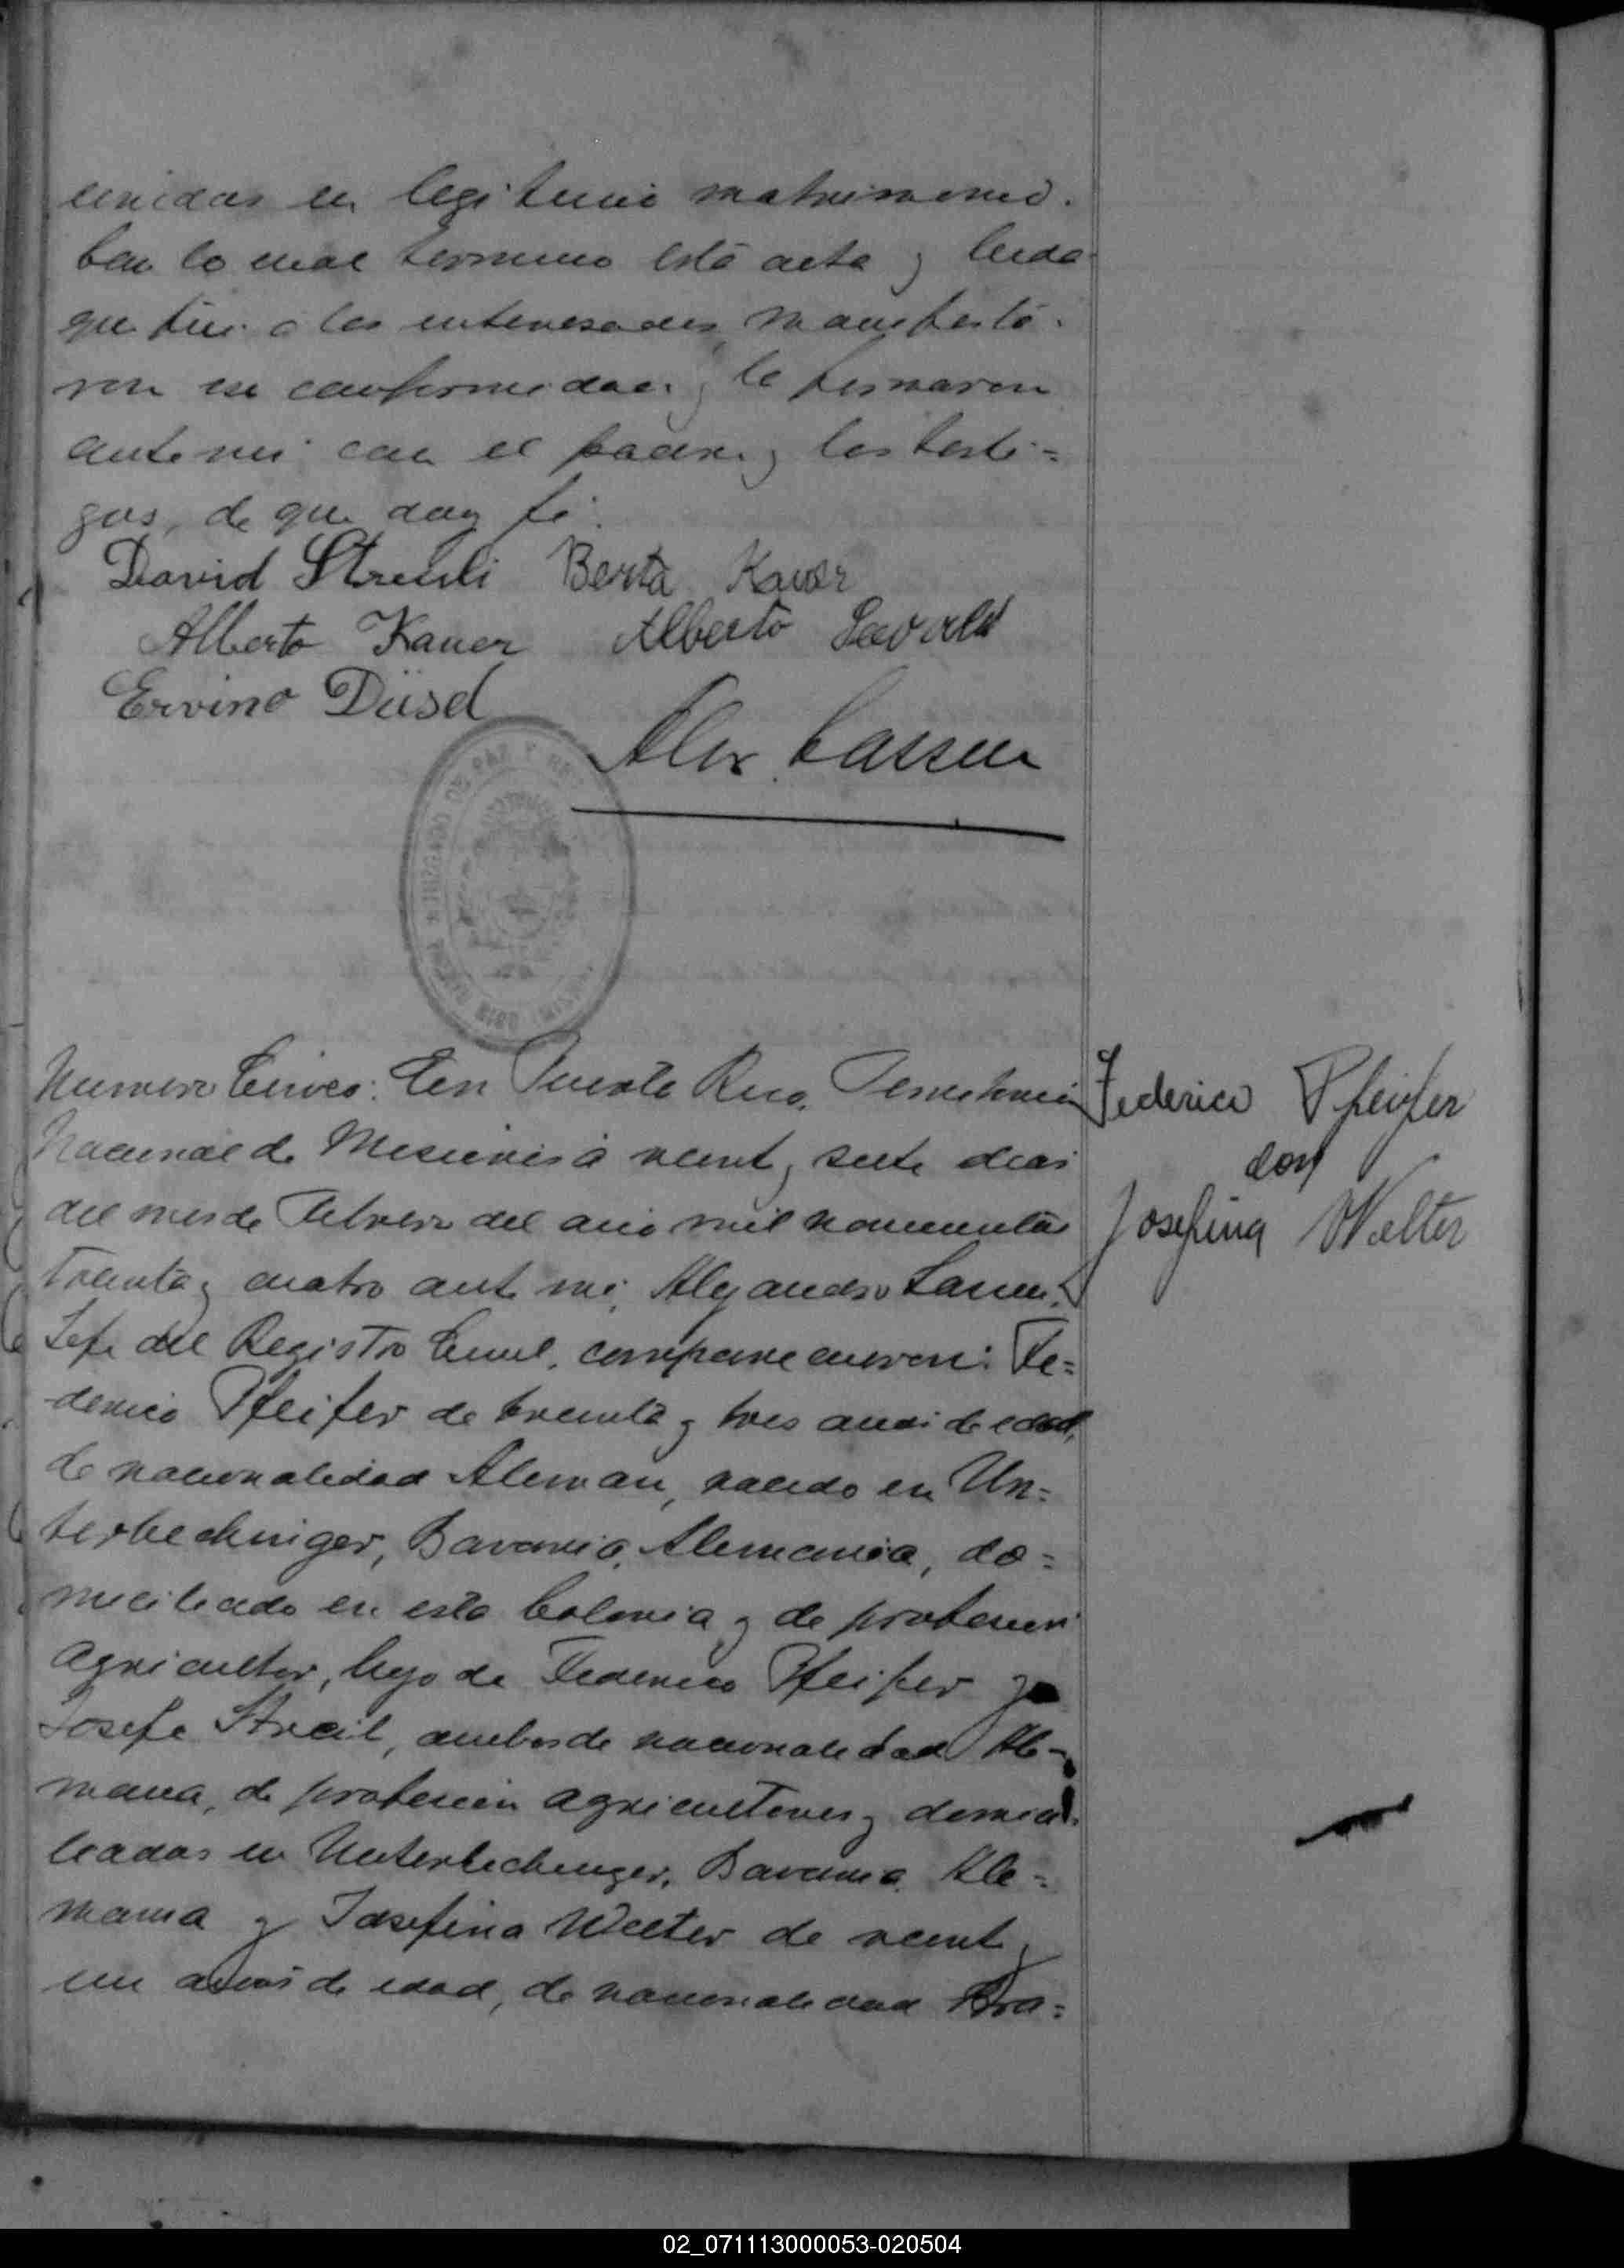 unidos en legitimo matrimonio.
Con lo cual termino esta acta y leida
que fue a los interesados, manifesta-
ron su conformidad y la firmaron
ante mi con el padre y los testi=
gos, de que doy fé.
David Streuli Berta Kauer
Alberto Kauer Alberto
Ervino Düsel
Alex. Lassen
JUZGADO DE PAZ Y
Numero Cinco: En Puerto Rico, Territorio
Nacional de Misiones á veinte y siete dias
del mes de Febrero del año mil novecientos
treinta y cuatro ante mi, Alejandro Lassen,
Jefe del Registro Civil, comparecieron: Fe=
derico Pfeifer de treinta y tres años de edad,
de nacionalidad Aleman, nacido en Un=
terbechinger, Bavaria, Alemania, do=
miciliado en esta Colonia y de profesion
agricultor, hijo de Federico Pfeifer y
Josefa, ambos de nacionalidad Ale-
mana, de profesion agricultores y domici-
liados en Unterbechinger, Bavaria, Ale=
mania y Josefina Welter de veinte y
un años de edad, de nacionalidad Bra=
Federico Pfeifer
con
Josefina Welter
02_071113000053-020504